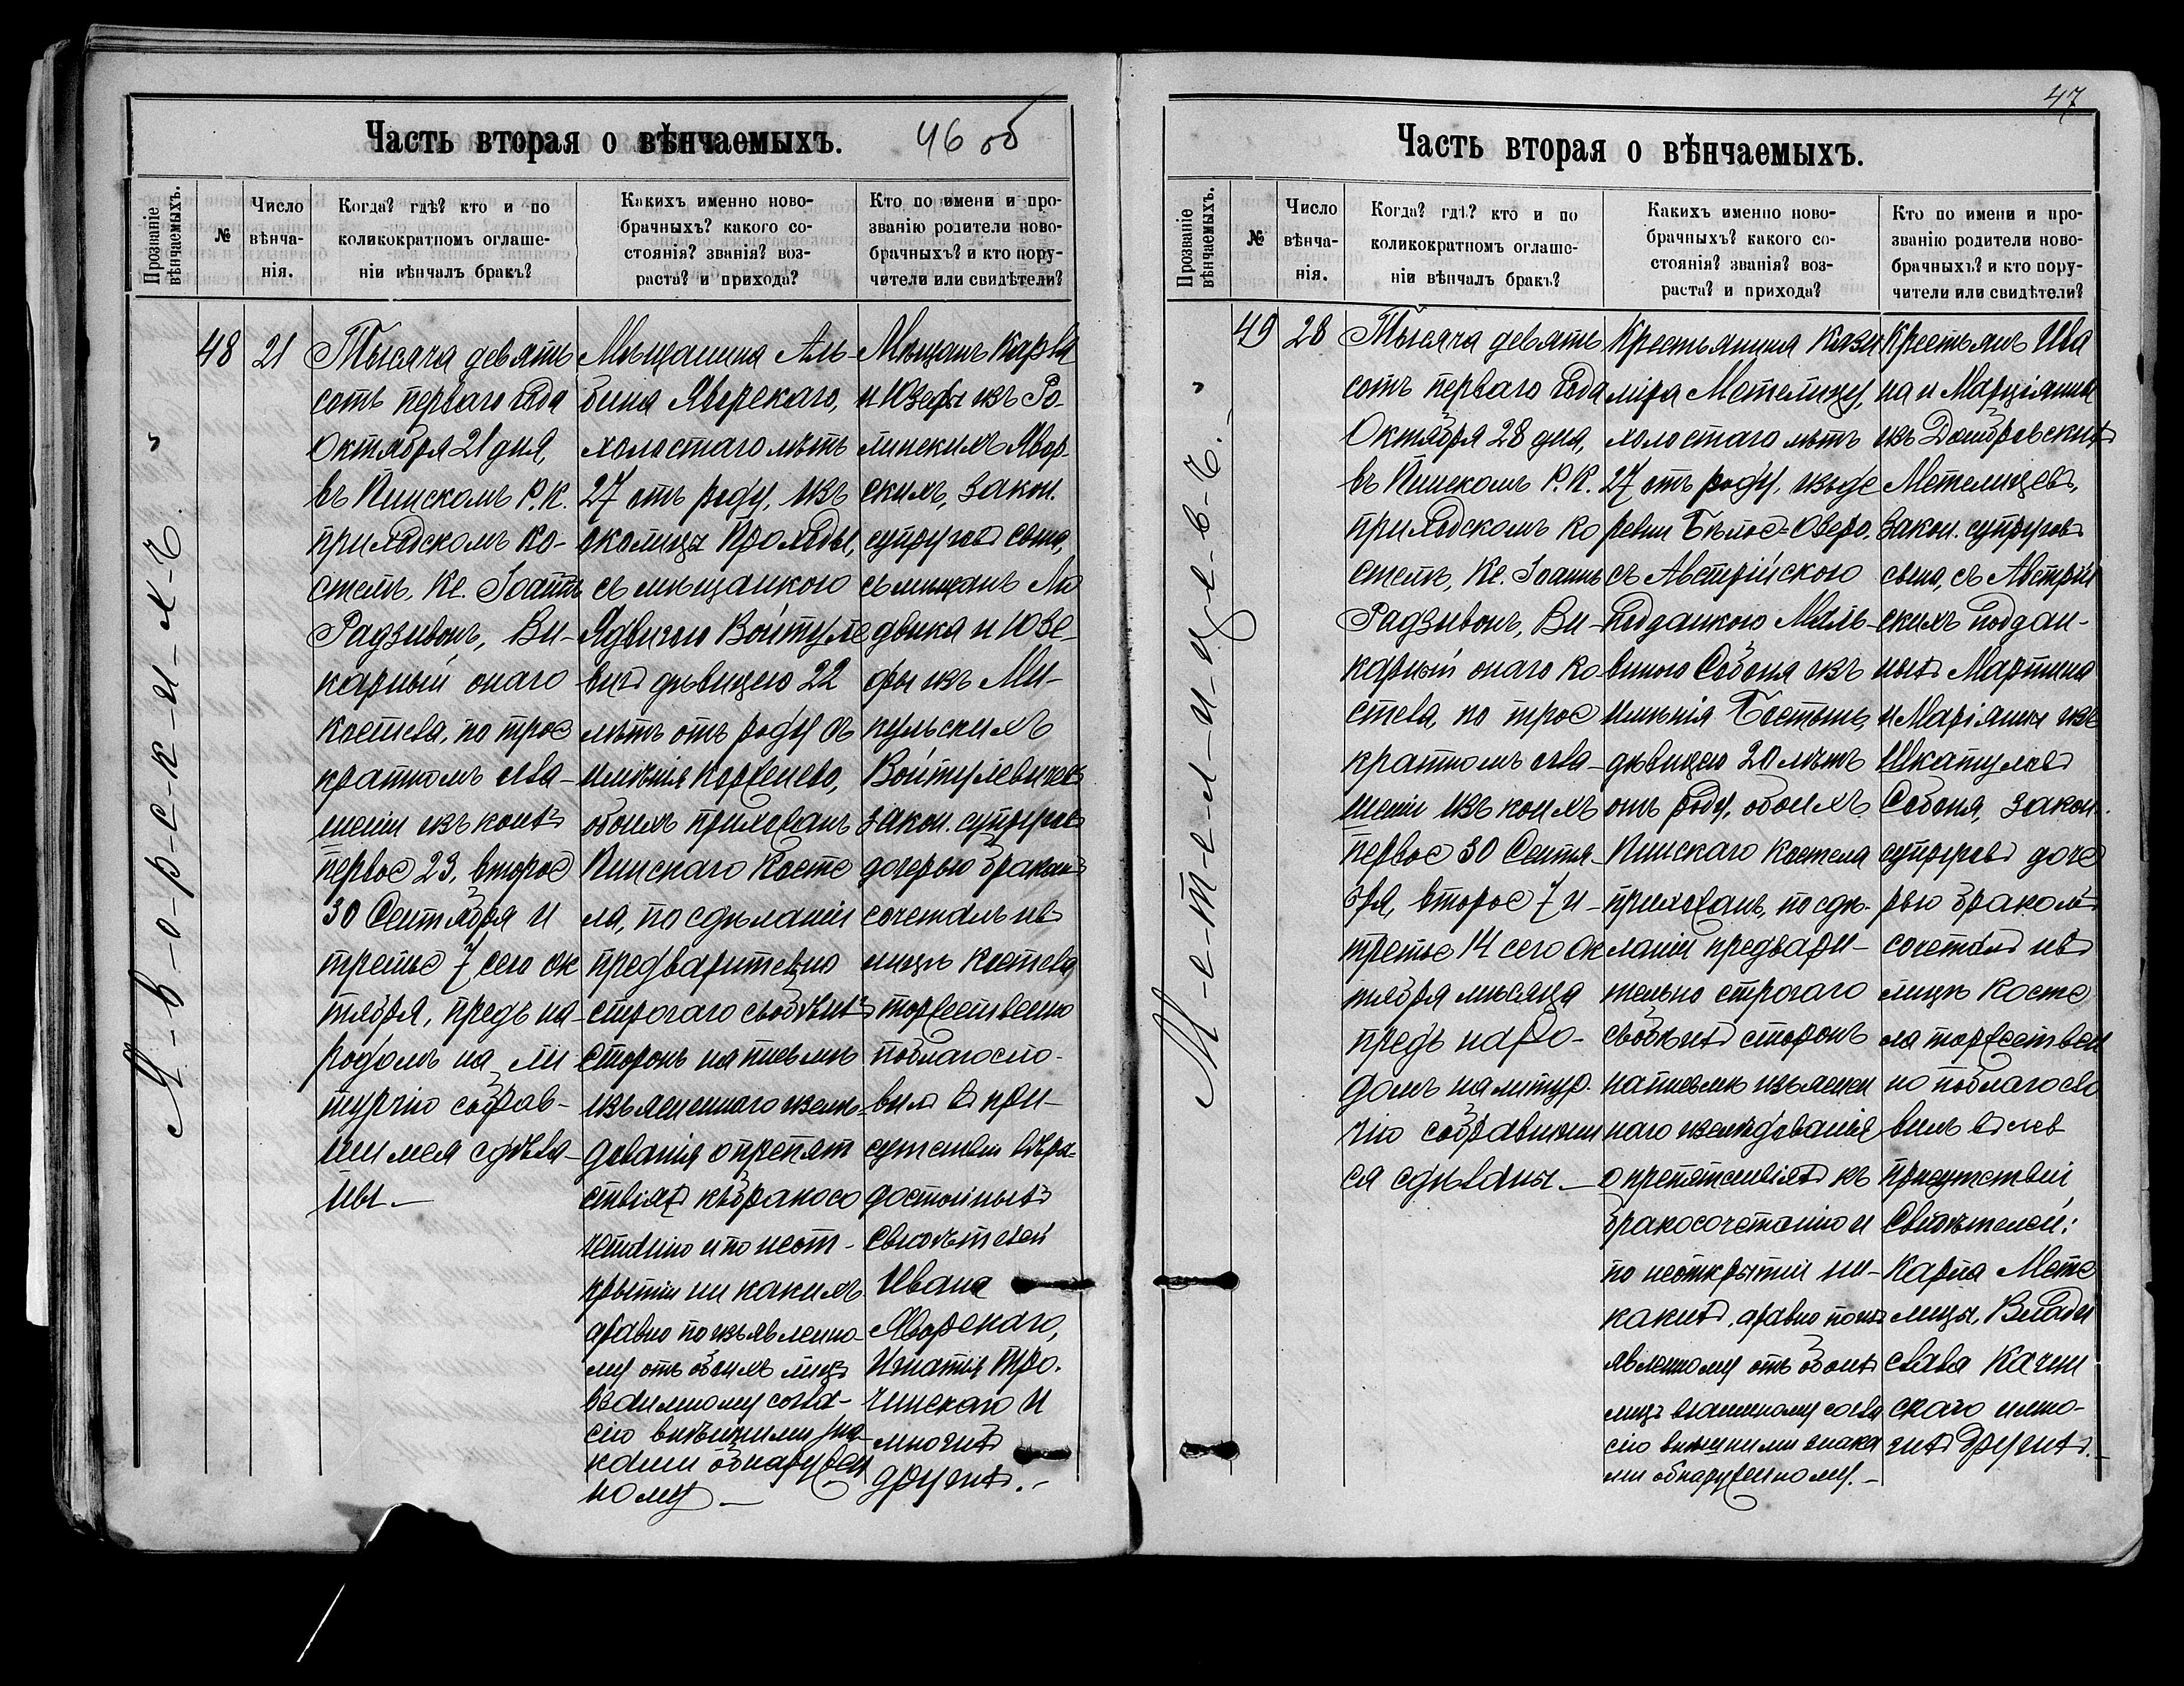 Часть вторая о вѣнчаемыхъ.
46 об
Прозваніе вѣнчаемыхъ.
№
Число вѣнча-
нія.
Когда? гдѣ? кто и по
коликократномъ оглаше-
ніи вѣнчалъ бракъ?
Какихъ именно ново-
брачныхъ? какого со-
стоянія? званія? воз-
раста? и прихода?
Кто по имени и про-
званію родители ново-
брачныхъ? и кто пору-
чители или свидѣтели?
Я-в-о-р-с-к-и-х-ъ.
48
21
Тысяча девять
сотъ перваго года
Октября 21 дня,
въ Пинскомъ Р. К.
приходскомъ ко-
стелѣ, Кс. Іоаннъ
Радзивонъ, Ви-
карный онаго
костела, по трое
кратномъ огла-
шеніи изъ коихъ
первое 23, второе
30 Сентября и
третье 7 сего ок
тября, предъ на-
родомъ на ли
тургію собрав-
шимся сдѣла-
ны.
Мѣщанина Аль-
бина Яворскаго,
холостаго лѣтъ
27 отъ роду, изъ
околицы Проходы,
съ мѣщанкою
Ядвигою Войтуле
вичъ дѣвицею 22
лѣтъ отъ роду съ
имѣнія Корженево,
обоихъ прихожанъ
Пинскаго Косте
ла, по сдѣланіи
предварительно
строгаго съ обѣихъ
сторонъ на письмѣ
изъясненнаго изслѣ
дованія о препят
ствіяхъ къ бракосо
четанію и по неот-
крытіи ни какихъ
а равно по изъявленно
му отъ обоихъ лицъ
взаимному согла-
сію внѣшними зна
ками обнаружен
ному
Мѣщанъ Карла
и Юзефы изъ Ро-
линскихъ Явор
скихъ, закон.
супруговъ сына,
съ мѣщанъ Лю
двика и Юзе-
фы изъ Ми-
кульскихъ
Войтулевичей
закон. супруговъ
дочерью бракомъ
сочеталъ и въ
лицѣ Костела
торжественно
поблагосло-
вилъ въ при-
сутствіи вѣро-
достойныхъ
Свидѣтелей
Ивана
Яворскаго,
Игнатія Тро-
чинскаго и
многихъ
другихъ.
47
Часть вторая о вѣнчаемыхъ.
Прозваніе вѣнчаемыхъ.
№
Число вѣнча-
нія.
Когда? гдѣ? кто и по
коликократномъ оглаше-
ніи вѣнчалъ бракъ?
Какихъ именно ново-
брачныхъ? какого со-
стоянія? званія? воз-
раста? и прихода?
Кто по имени и про-
званію родители ново-
брачныхъ? и кто пору-
чители или свидѣтели?
М-е-т-е-л-и-ц-е-в-ъ.
49
28
Тысяча девять
сотъ перваго года
Октября 28 дня,
въ Пинскомъ Р. К.
приходскомъ ко
стелѣ, Кс. Іоаннъ
Радзивонъ, Ви-
карный онаго ко-
стела, по трое
кратномъ огла-
шеніи изъ коихъ
первое 30 Сентя-
бря, второе 7 и
третье 14 сего Ок
тября мѣсяца
предъ наро-
домъ на литур-
гію собравшим
ся сдѣланы.
Крестьянина Кази
міра Метелицу,
холостаго лѣтъ
27 отъ роду, изъ де
ревни Бѣлое-Озеро,
съ Австрійскою
Подданкою Маль-
виною Собоня изъ
имѣнія Бостынь,
дѣвицею 20 лѣтъ
отъ роду, обоихъ
Пинскаго Костела
прихожанъ, по сдѣ-
ланіи предвари-
тельно строгаго
съ обѣихъ сторонъ
на письмѣ изъяснен
наго изслѣдованія
о препятствіяхъ къ
бракосочетанію и
по неоткрытіи ни-
какихъ, а равно по изъ
явленному отъ обоихъ
лицъ взаимному согла
сію внѣшними знака
ми обнаруженному.
Крестьянъ Ива
на и Марціянны
изъ Домбровскихъ
Метелицевъ,
закон. супруговъ
сына, съ Австрій
скихъ поддан-
ныхъ Мартина
и Маріянны изъ
Шкатулов
Собоня, закон.
супруговъ доче
рью бракомъ
сочеталъ и въ
лицѣ Косте
ла торжествен
но поблагосло
вилъ въ
присутствіи
Свидѣтелей:
Карла Мете
лицы, Влади
слава Качин
скаго и мно-
гихъ другихъ.